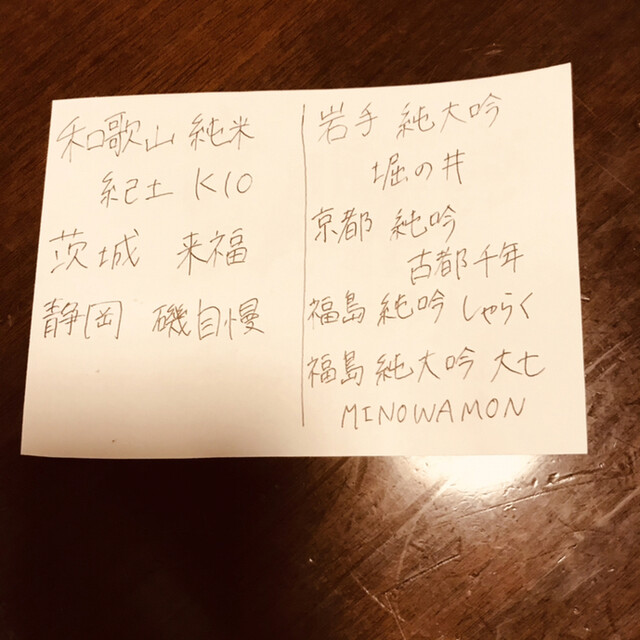 和歌山 純米
紀土 KIO
茨城 来福
静岡 磯自慢
岩手 純大吟
堀の井
京都 純吟
古都千年
福島 純吟 しゃらく
福島 純大吟 大七
MINOWAMON